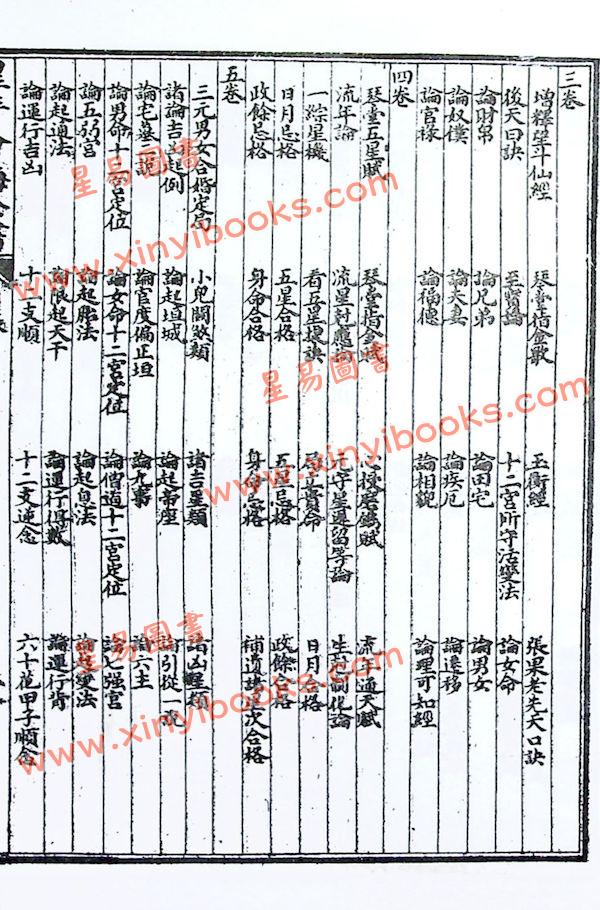 三卷
增釋望斗仙經 琴堂指金歌 玉衡經 張果老先天口訣
後天口訣 至寶論 十二宮所守活變法 論女命
論財帛 論兄弟 論田宅 論男女
論奴僕 論夫妻 論疾厄 論遷移
論官祿 論福德 論相貌 論理可知經
四卷
琴堂五星賦 琴堂指金賦 流年通天賦
流年論 流星對應 元守星遲留等論 生剋制化論
一綜星機 看五星捷訣 日月合格
日月忌格 五星合格 五星忌格 政餘合格
政餘忌格 身命合格 身命忌格 補遺 次合格
五卷
三元男女合婚定局 小兒關煞類 諸吉星類 諸凶星類
諸論吉凶起例 論起垣城 論起帝座 論引從
論宅墓二說 論官度偏正垣 論九事 論六主
論男命十二宮定位 論女命十二宮定位 論僧道十二宮定位 論七强宮
論五弱宮 論起胎法 論起息法 論起變法
論起通法 論限起天干 論運行 論運行背
論運行吉凶 十二支順 十二支逆念 六十花甲子順念
星易圖書
www.xinyibooks.com
星易圖書
www.xinyibooks.com
星易圖書
www.xinyibooks.com